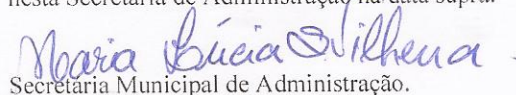 nesta Secretaria de Administração na data supra.
Maria Lúcia S. Vilhena
Secretária Municipal de Administração.